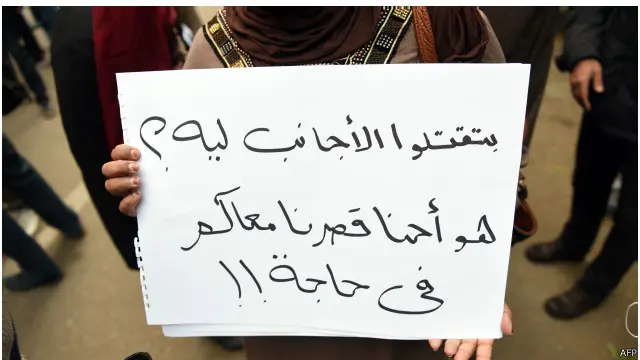 بتقتلوا الأجانب ليه؟
هو أحنا قصرنا معاكم
فى حاجة!!
AFP